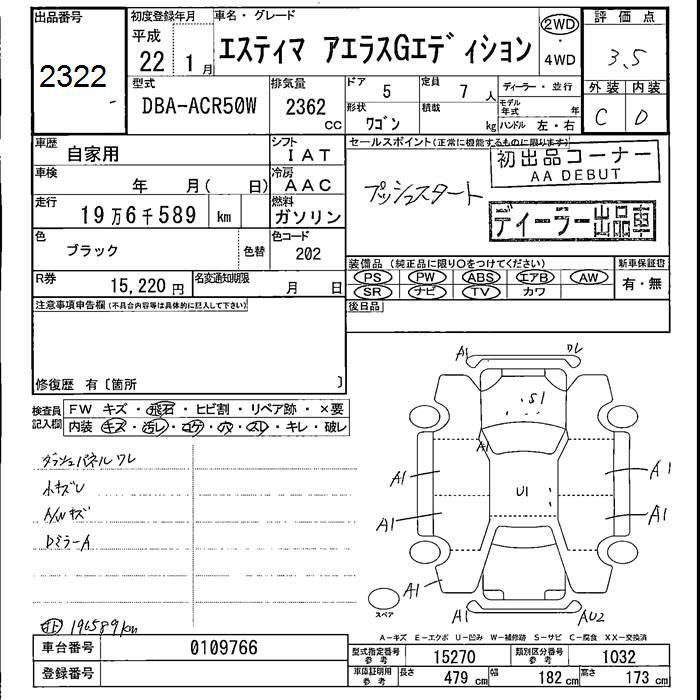 出品番号
2322
初度登録年月
平成
22 1月
車名・グレード
エスティマ アエラスGエディション
2WD
・
4WD
評価点
3.5
型式
DBA-ACR50W
排気量
2362
CC
ドア
5
定員
7 人
形状
ワゴン
積載
kg
ディーラー・並行
モデル年式 年
ハンドル 左・右
外装 内装
C D
車歴
自家用
シフト
IAT
セールスポイント(正常に機能するものに限ります)
初出品コーナー
AA DEBUT
プッシュスタート
ディーラー出品車
車検
年 月( 日)
冷房
AAC
走行
19万6千589 km
燃料
ガソリン
色
ブラック
色替
色コード
202
R券
15,220円
名変通知期限
月 日
装備品(純正品に限り○をつけてください)
PS PW ABS エアB AW
SR ナビ TV カワ
新車保証書
有・無
後日品
注意事項申告欄(不具合内容等は具体的に記入して下さい)
修復歴 有〔箇所 〕
検査員記入欄
FW キズ・飛石・ヒビ割・リペア跡・×要
内装・キズ・汚レ・コゲ・穴・スレ・キレ・破レ
ダッシュパネルワレ
小キズU
A/Wキズ
DミラーA
196589km
A1
ワレ
S1
A1
A1
A1
U1
A1
A1
A1
A1
AU2
スペア
A-キズ E-エクボ U-凹み W-補修跡 S-サビ C-腐食 XX-交換済
車台番号
0109766
登録番号
型式指定番号 参考
15270
類別区分番号 参考
1032
車庫証明用 参考
長さ 479 cm
幅 182 cm
高さ 173 cm